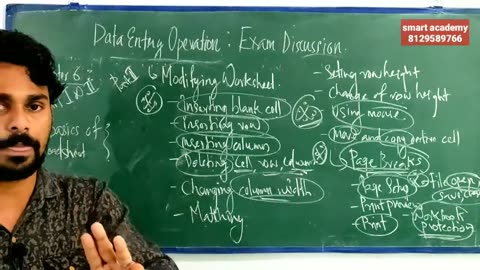 smart academy
8129589766
Data Entry Operation : Exam Discussion
Part II
6 Modifying Worksheet
- Inserting blank cell
- Inserting row
- Inserting column
- Deleting cell row column
- Changing column width
- Matching
basics of
- Seting row height
- Change of row height
- Using mouse
- Move and copy entire cell
- Page Breaks
- Page Setup
- Print preview
- Print
- File open
save/close
- Workbook
protection